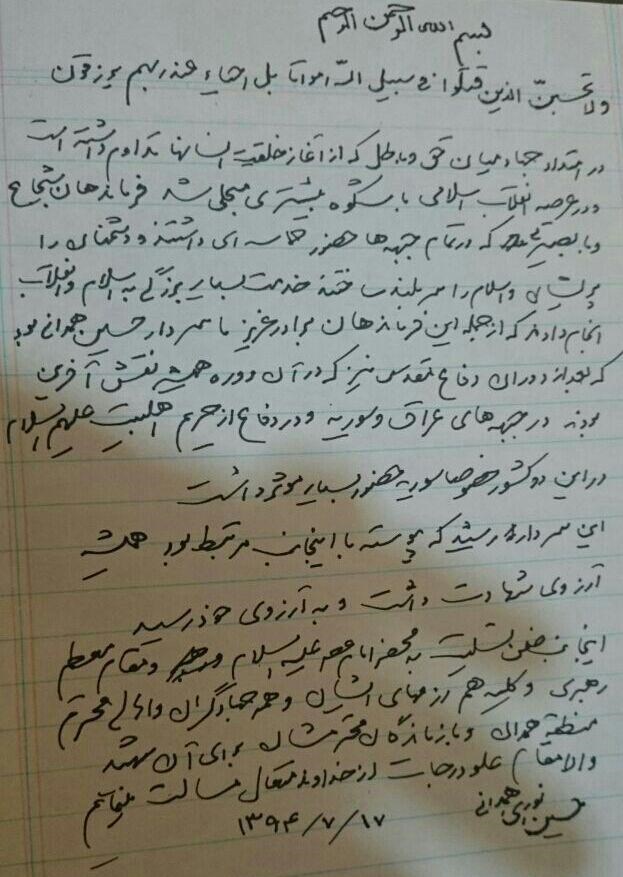 بسم الله الرحمن الرحیم
ولا تحسبن الذین قتلوا فی سبیل الله امواتا بل احیاء عند ربهم یرزقون
در امتداد جهاد میان حق و باطل که از آغاز خلقت انسانها تداوم داشته است
و در عرصه انقلاب اسلامی با شکوه بیشتری متجلی شد فرماندهان شجاع
و با بصیرتی که در تمام جبهه ها حضور حماسه ای داشتند و دشمنان را
پریشان و اسلام را سر بلند ساختند خدمت بسیار بزرگی به اسلام و انقلاب
انجام دادند که از جمله این فرماندهان برادر عزیز ما سردار حسین همدانی بود
که بعد از دوران دفاع مقدس نیز که در آن دوره همیشه نقش آفرین
بودند در جبهه های عراق و سوریه و در دفاع از حریم اهلبیت علیهم السلام
در این دو کشور خصوصا سوریه حضور بسیار موثر داشت
این سردار رشید که پیوسته با اینجانب مرتبط بود همیشه
آرزوی شهادت داشت و به آرزوی خود رسید
اینجانب ضمن تسلیت به محضر امام عصر علیه السلام و مقام معظم
رهبری و کلیه هم رزمهای ایشان و همه جهادگران و اهالی محترم
منطقه همدان و بازماندگان محترمشان برای آن شهید
والامقام علو درجات از خداوند متعال مسالت مینمایم
حسین نوری همدانی
۱۳۹۴/۷/۱۷